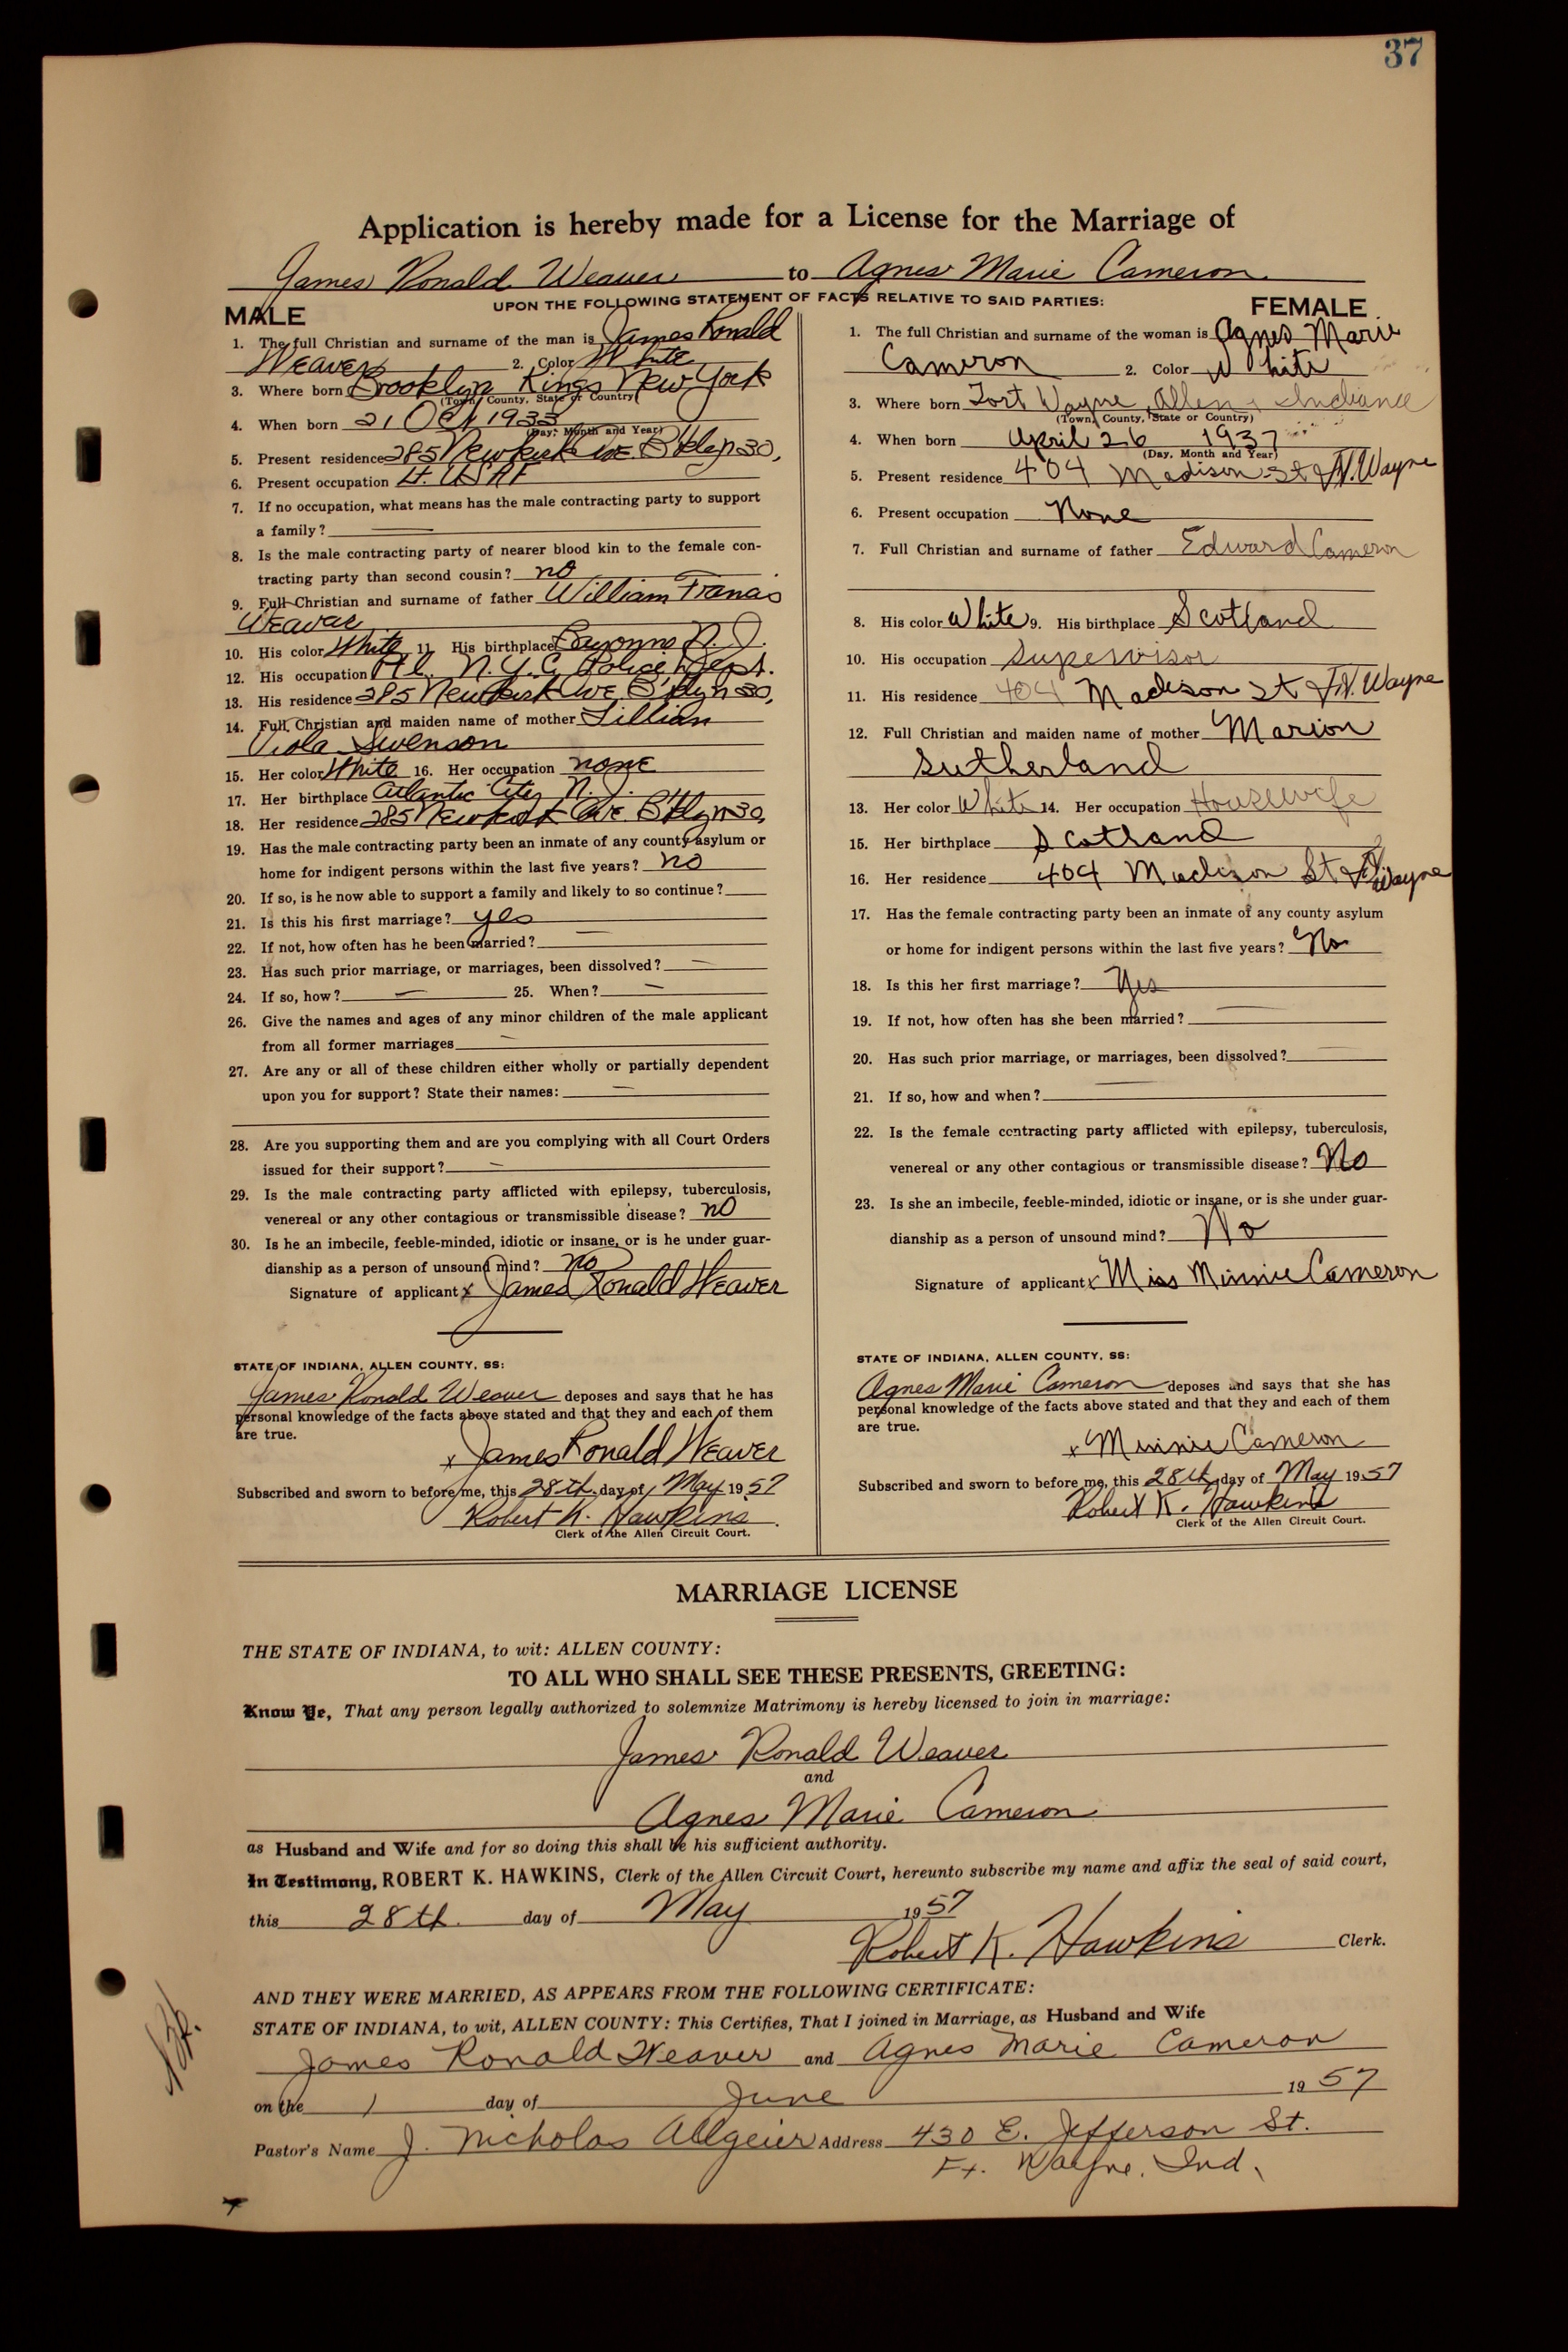 37
Application is hereby made for a License for the Marriage of
James Ronald Weaver to Agnes Marie Cameron
UPON THE FOLLOWING STATEMENT OF FACTS RELATIVE TO SAID PARTIES:
MALE
1. The full Christian and surname of the man is James Ronald
Weaver 2. Color White
3. Where born Brooklyn Kings New York
(Town, County, State or Country)
4. When born 21 Oct 1933
(Day, Month and Year)
5. Present residence 285 Newkirk Ave. B'klyn 30,
6. Present occupation Lt. USAF
7. If no occupation, what means has the male contracting party to support
a family? —
8. Is the male contracting party of nearer blood kin to the female con-
tracting party than second cousin? no
9. Full Christian and surname of father William Francis
Weaver
10. His color White 11. His birthplace Bayonne N. J.
12. His occupation N.Y.C. Police Dept.
13. His residence 285 Newkirk Ave. B'klyn 30,
14. Full Christian and maiden name of mother Lillian
Viola Swenson
15. Her color White 16. Her occupation none
17. Her birthplace Atlantic City N. J.
18. Her residence 285 Newkirk Ave B'klyn 30,
19. Has the male contracting party been an inmate of any county asylum or
home for indigent persons within the last five years? no
20. If so, is he now able to support a family and likely to so continue?
21. Is this his first marriage? yes
22. If not, how often has he been married? —
23. Has such prior marriage, or marriages, been dissolved? —
24. If so, how? — 25. When? —
26. Give the names and ages of any minor children of the male applicant
from all former marriages —
27. Are any or all of these children either wholly or partially dependent
upon you for support? State their names: —
28. Are you supporting them and are you complying with all Court Orders
issued for their support? —
29. Is the male contracting party afflicted with epilepsy, tuberculosis,
venereal or any other contagious or transmissible disease? no
30. Is he an imbecile, feeble-minded, idiotic or insane, or is he under guar-
dianship as a person of unsound mind? no
Signature of applicant x James Ronald Weaver
STATE OF INDIANA, ALLEN COUNTY, SS:
James Ronald Weaver deposes and says that he has
personal knowledge of the facts above stated and that they and each of them
are true.
x James Ronald Weaver
Subscribed and sworn to before me, this 28th day of May 1957
Robert K. Hawkins
Clerk of the Allen Circuit Court.
FEMALE
1. The full Christian and surname of the woman is Agnes Marie
Cameron 2. Color White
3. Where born Fort Wayne, Allen, Indiana
(Town, County, State or Country)
4. When born April 26 1937
(Day, Month and Year)
5. Present residence 404 Madison St Ft. Wayne
6. Present occupation None
7. Full Christian and surname of father Edward Cameron
8. His color White 9. His birthplace Scotland
10. His occupation Supervisor
11. His residence 404 Madison St Ft. Wayne
12. Full Christian and maiden name of mother Marion
Sutherland
13. Her color White 14. Her occupation Housewife
15. Her birthplace Scotland
16. Her residence 404 Madison St Ft Wayne
17. Has the female contracting party been an inmate of any county asylum
or home for indigent persons within the last five years? No
18. Is this her first marriage? Yes
19. If not, how often has she been married? —
20. Has such prior marriage, or marriages, been dissolved? —
21. If so, how and when? —
22. Is the female contracting party afflicted with epilepsy, tuberculosis,
venereal or any other contagious or transmissible disease? No
23. Is she an imbecile, feeble-minded, idiotic or insane, or is she under guar-
dianship as a person of unsound mind? No
Signature of applicant x Miss Minnie Cameron
STATE OF INDIANA, ALLEN COUNTY, SS:
Agnes Marie Cameron deposes and says that she has
personal knowledge of the facts above stated and that they and each of them
are true.
x Minnie Cameron
Subscribed and sworn to before me, this 28th day of May 1957
Robert K. Hawkins
Clerk of the Allen Circuit Court.
MARRIAGE LICENSE
THE STATE OF INDIANA, to wit: ALLEN COUNTY:
TO ALL WHO SHALL SEE THESE PRESENTS, GREETING:
Know Ye, That any person legally authorized to solemnize Matrimony is hereby licensed to join in marriage:
James Ronald Weaver
and
Agnes Marie Cameron
as Husband and Wife and for so doing this shall be his sufficient authority.
In Testimony, ROBERT K. HAWKINS, Clerk of the Allen Circuit Court, hereunto subscribe my name and affix the seal of said court,
this 28th day of May 1957
Robert K. Hawkins Clerk.
AND THEY WERE MARRIED, AS APPEARS FROM THE FOLLOWING CERTIFICATE:
STATE OF INDIANA, to wit, ALLEN COUNTY: This Certifies, That I joined in Marriage, as Husband and Wife
James Ronald Weaver and Agnes Marie Cameron
on the 1 day of June 1957
Pastor's Name J. Nicholas Allgeier Address 430 E. Jefferson St.
Ft. Wayne, Ind.